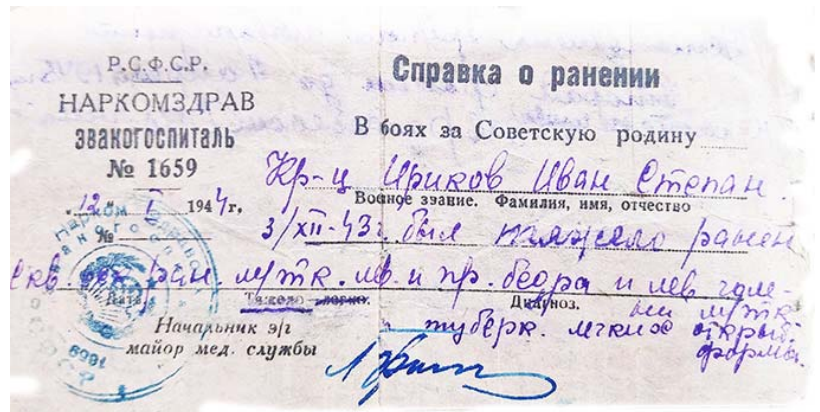 Р.С.Ф.С.Р.
НАРКОМЗДРАВ
ЭВАКОГОСПИТАЛЬ
№ 1659
„12“ I 1944 г.
№
Справка о ранении
В боях за Советскую родину
Кр-ц Ириков Иван Степан.
Военное звание. Фамилия, имя, отчество
3/XII-43 г. был тяжело ранен
скв. ран. м/тк. лев. и пр. бедра и лев. голе-
Дата Тяжело-легко. Диагноз.
ни м/тк
и туберк. легких открыт.
формы.
Начальник э/г
майор мед. службы
1659